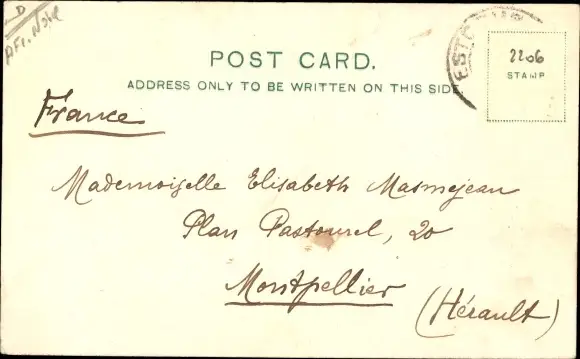 D
Afr. Nord
POST CARD.
ADDRESS ONLY TO BE WRITTEN ON THIS SIDE.
2206
STAMP
France
Mademoiselle Elisabeth Masmejean
Plan Pastourel, 20
Montpellier
(Hérault)